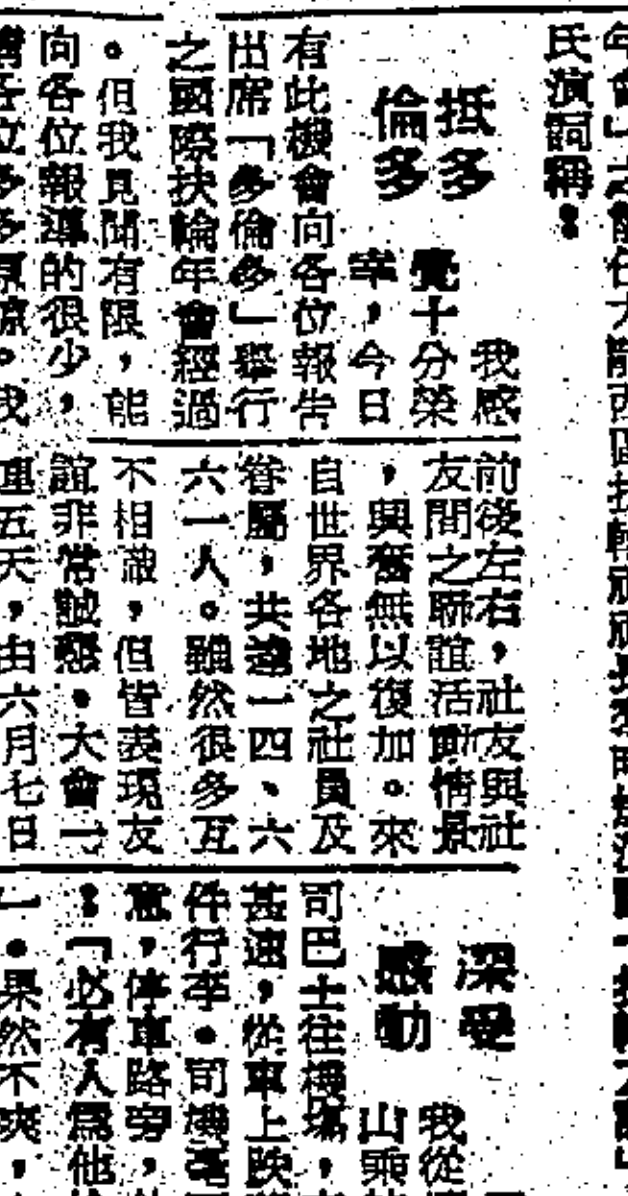 氏演詞稱：
抵多
倫多
我感
覺十分榮
幸，今日
有此機會向各位報告
出席「多倫多」舉行
之國際扶輪年會經過
。但我見聞有限，能
向各位報導的很少，
前後左右，社友與社
友間之聯誼活動情景
，興奮無以復加。來
自世界各地之社員及
眷屬，共達一四、六
六一人。雖然很多互
不相識，但皆表現友
誼非常誠懇。大會一
連五天，由六月七日
深受
感動
我從
山乘
司巴士往機場，
甚速，從車上跌
件行李。司機毫
意，停車路旁，
：「必有人爲他
」。果然不爽，